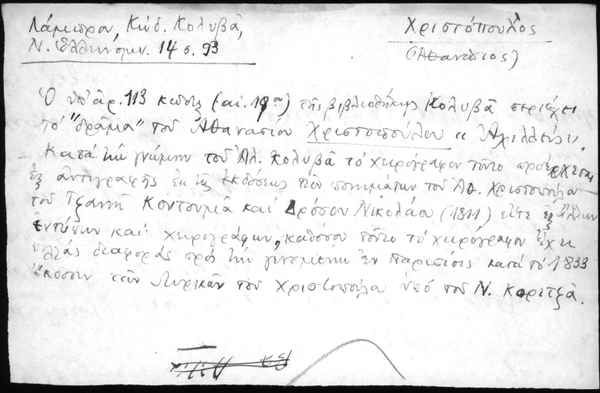 Λάμπρον, Κώδ. Κολυβᾶ,
Ν. Ἑλληνομν. 14 σ. 93
Χριστόπουλος
(Ἀθανάσιος)
Ὁ ὑπ' ἀρ. 113 κῶδιξ (αἰ. 19ου) τῆς βιβλιοθήκης Κολυβᾶ περιέχει
τὸ "δρᾶμα" τοῦ Ἀθανασίου Χριστοπούλου "Ἀχιλλεύς".
Κατὰ τὴν γνώμην τοῦ Ἀλ. Κολυβᾶ τὸ χειρόγραφον τοῦτο προέρχεται
ἐξ ἀντιγραφῆς ἐκ τῆς ἐκδόσεως τῶν ποιημάτων τοῦ Ἀθ. Χριστοπούλου
τοῦ Τζαννῆ Κοντουμᾶ καὶ Δρόσου Νικολάου (1811) εἴτε ἐξ ἄλλων
ἐντύπων καὶ χειρογράφων, καθόσον τοῦτο τὸ χειρόγραφον ἔχει
πολλὰς διαφορὰς πρὸς τὴν γενομένην ἐν Παρισίοις κατὰ τὸ 1833
ἔκδοσιν τῶν Λυρικῶν τοῦ Χριστοπούλου ὑπὸ τοῦ Ν.